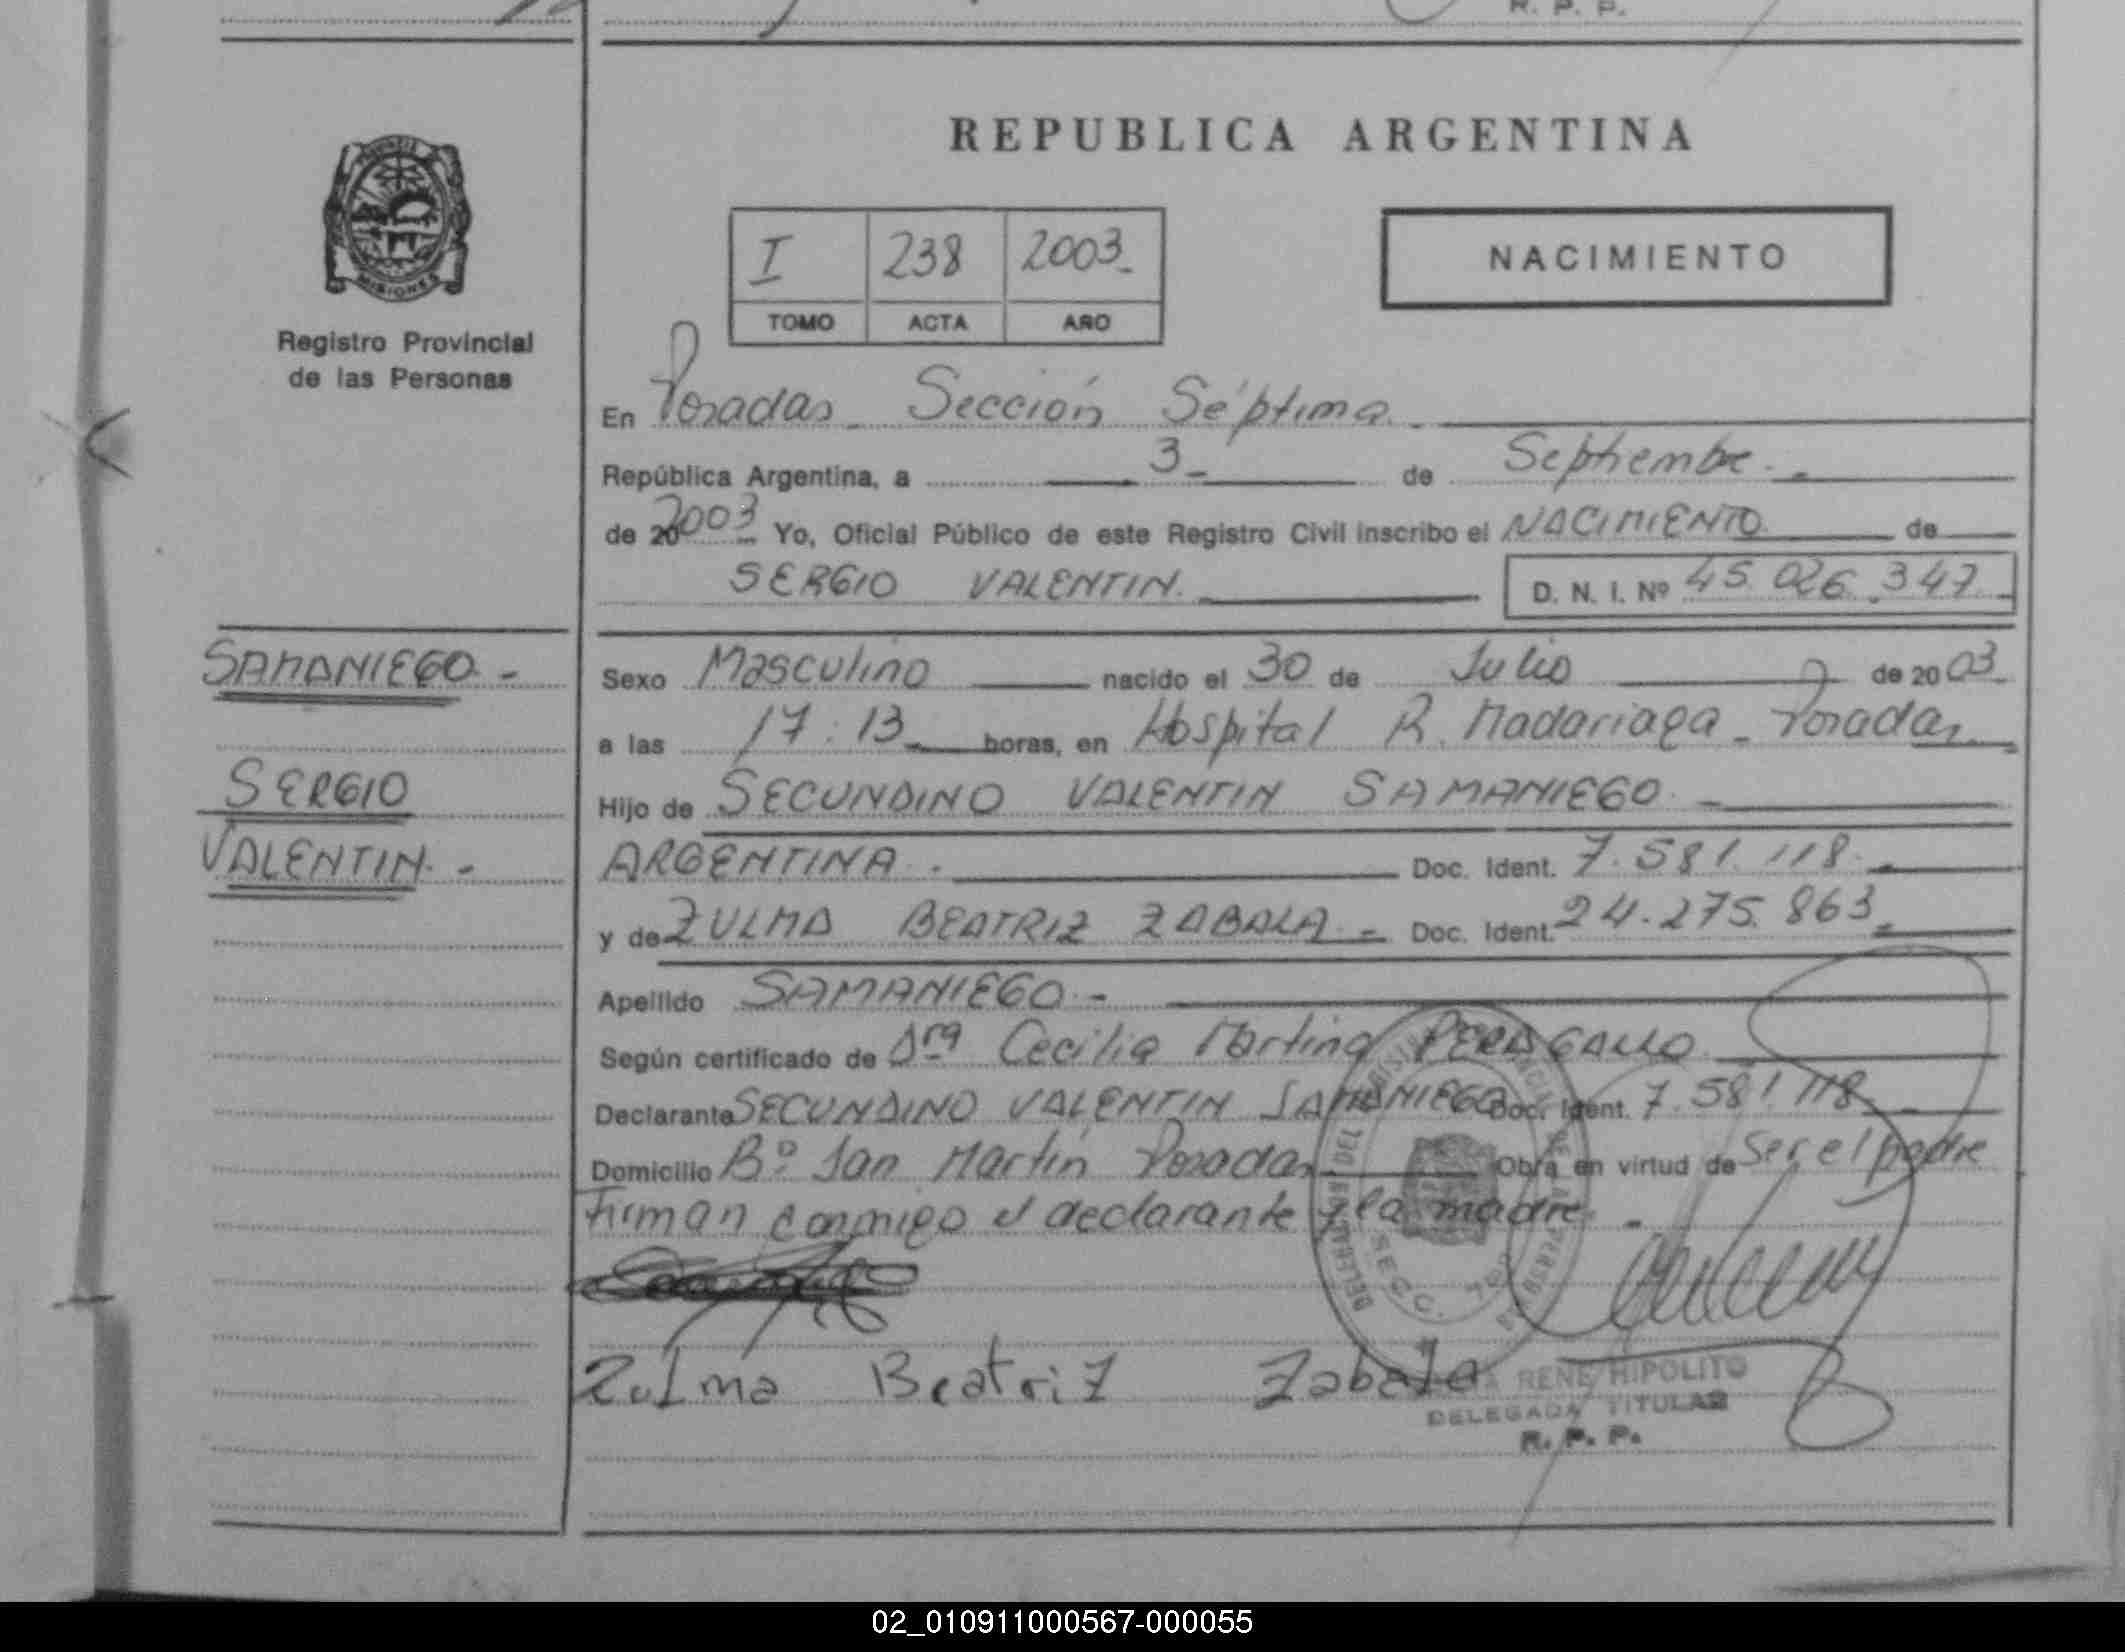 R. P. P.
REPUBLICA ARGENTINA
MISIONES
I 238 2003
TOMO ACTA AÑO
NACIMIENTO
Registro Provincial
de las Personas
En Posadas Sección Séptima.
República Argentina, a 3 de Septiembre.
de 20 2003 Yo, Oficial Público de este Registro Civil inscribo el NACIMIENTO de
SERGIO VALENTIN. D. N. I. Nº 45.026.347
SAMANIEGO -
SERGIO
VALENTIN. -
Sexo Masculino nacido el 30 de Julio de 2003
a las 17:13 horas, en Hospital R. Madariaga - Posadas
Hijo de SECUNDINO VALENTIN SAMANIEGO. -
ARGENTINA. Doc. Ident. 7.581.118.
y de ZULMA BEATRIZ ZABALA. - Doc. Ident. 24.275.863
Apellido SAMANIEGO. -
Según certificado de Dra Cecilia Martina PERAGALLO
Declarante SECUNDINO VALENTIN SAMANIEGO Doc. Ident. 7.581.118
Domicilio Bº San Martín Posadas Obra en virtud de ser el padre
Firman conmigo el declarante y la madre. -
SECC. 7
Zulma Beatriz Zabala
RENE HIPOLITO
DELEGADA TITULAR
R. P. P.
02_010911000567-000055